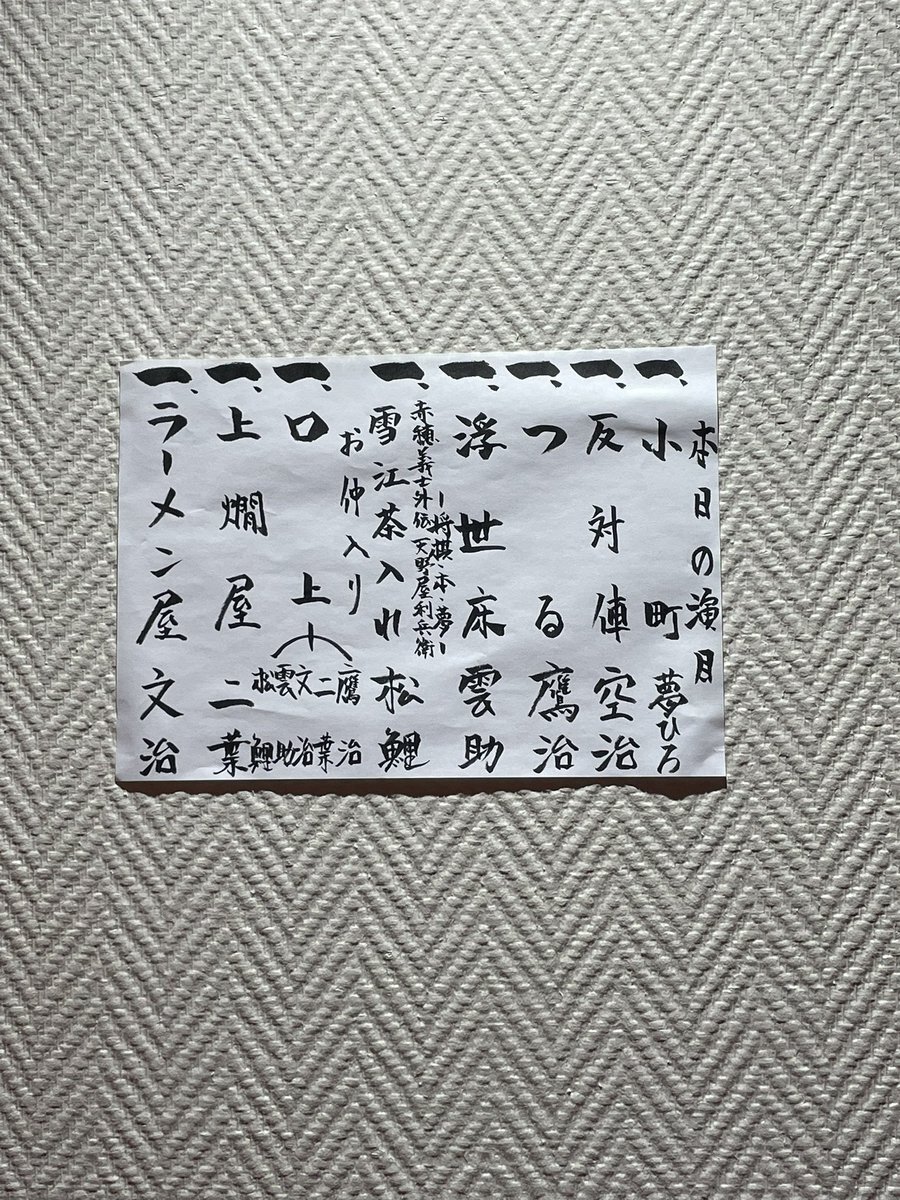 本日の演目
一、小町 夢ひろ
一、反対俥 空治
一、つる 鷹治
一、浮世床 雲助
―将棋・本・夢―
赤穂義士外伝 天野屋利兵衛
一、雪江茶入れ 松鯉
お仲入り
一、口上
鷹治
二葉
文治
雲助
松鯉
一、上燗屋 二葉
一、ラーメン屋 文治